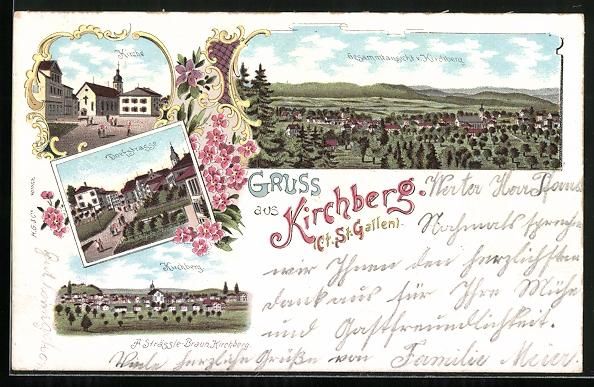 Kirche
Gesammtansicht v. Kirchberg
Dorfstrasse
GRUSS
aus
Kirchberg.
(Ct. St. Gallen).
Kirchberg.
A. Strässle-Braun, Kirchberg
Werter Herr
Nochmals sprechen
wir Ihnen den herzlichsten
Dank aus für Ihre Mühe
und Gastfreundlichkeit.
Viele herzliche Grüße von Familie Meier.